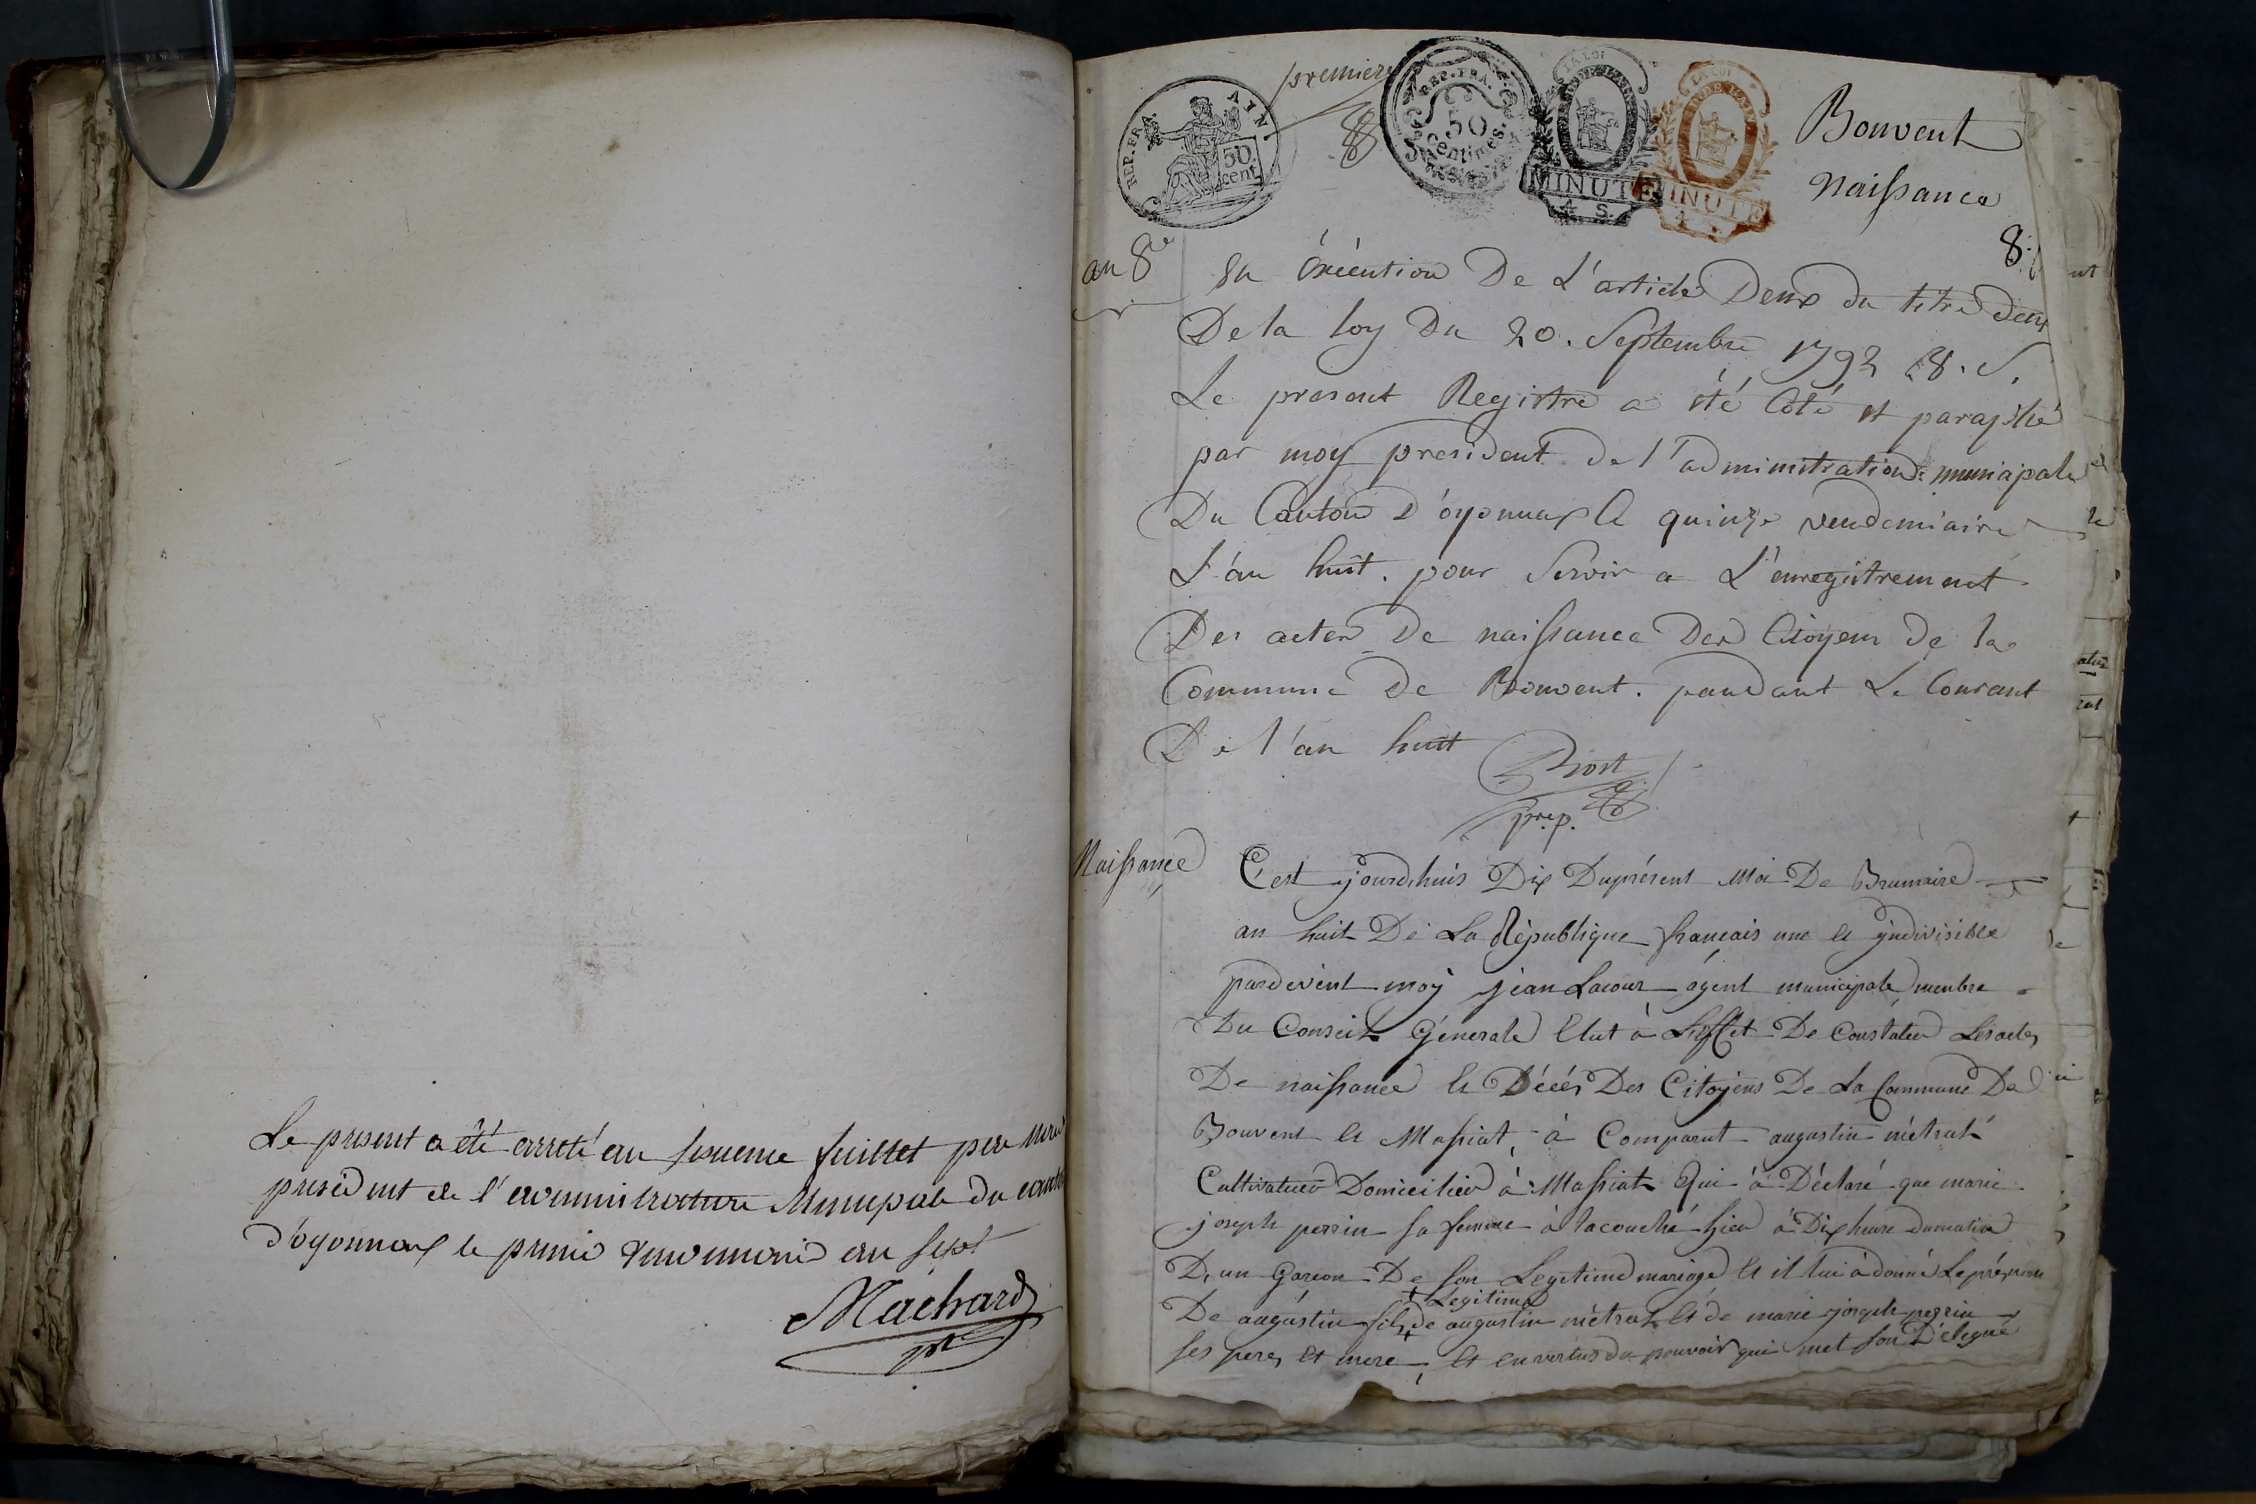 Le present a été arreté au sixieme feuillet par nous
president de l'administration Municipale du canton
d'oyonnax le premier vendemiaire an sept
Machard
pt
premiere
REP. FRA.
AIN.
50
cent.
REP. FRA.
50
Centimes.
LA LOI
MINUTE
4 S.
LA LOI
MINUTE
4
Bouvent
Naissance
8.
an 8e
En Éxécution De L'article Deux du titre deux
De la loy Du 20. Septembre 1792 v. s.
Le present Registre a été Coté et paraphé
par moy president de l'adminitration municipale
Du Canton D'oyonnax le quinze vendemiaire
L'an huit. pour Servir a L'enregistrement
Des actes De naissance Des Citoyens de la
Commune De Bouvent. pandant Le Courant
De l'an huit
pre.p.
Naissance
C'est jourdhuis Dix Duprésent Moi De Brumaire
an huit De La République francais une et yndivisible
pardevent moy jean Lacour agent municipale menbre
Du Conseil Génerale Elut à Leffet De Constater Lesactes
De naissance et Décés Des Citoyens De La Commune De
Bouvent et Massiat, à Comparut augustin métrat
Cultivateur Domicilier à Massiat Qui à Déclaré que marie
joseph perrin sa femme à lacouché hier à Dix heure dumatin
D,un Garcon De son Legitime mariage et il lui à donné Leprénom
+ Legitime
De augustin fils+ de augustin métrat et de marie joseph perrin
ses peres et mere, et en vertus du pouvoir qui met son Délegué